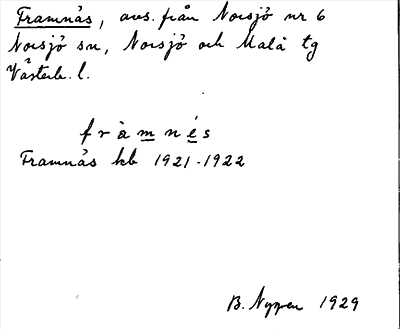 Framnäs, avs. från Norsjö nr 6
Norsjö sn, Norsjö och Malå tg
Västerb. l.
fràmnés
Framnäs kb 1921-1922
B. Nygren 1929